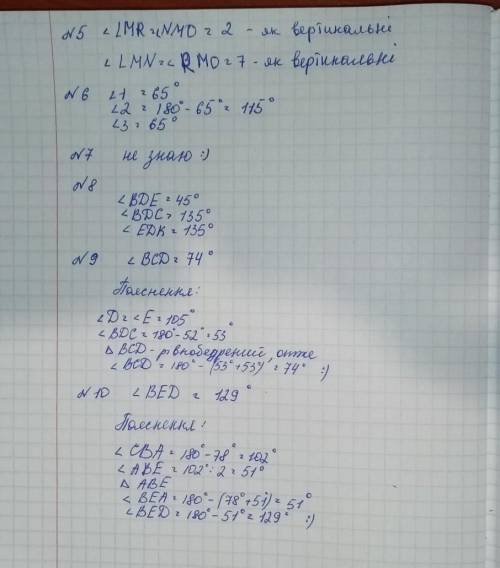 №5 ∠LMR=∠NMO = 2 - як вертикальні
∠LMN=∠RMO=7 - як вертикальні
№6 ∠1 = 65°
∠2 = 180°- 65° = 115°
∠3 = 65°
№7 не знаю :)
№8
∠BDE = 45°
∠BDC = 135°
∠EDK = 135°
№9 ∠BCD = 74°
Пояснення:
∠D=∠E=105°
∠BDC = 180°-52°=53°
△ BCD - рівнобедрений, отже
∠BCD = 180° - (53°+53°) = 74° :)
№10 ∠BED = 129°
Пояснення:
∠CBA = 180°-78° = 102°
∠ABE = 102° : 2 = 51°
△ ABE
∠BEA = 180°-(78°+51) = 51°
∠BED = 180°- 51° = 129° :)